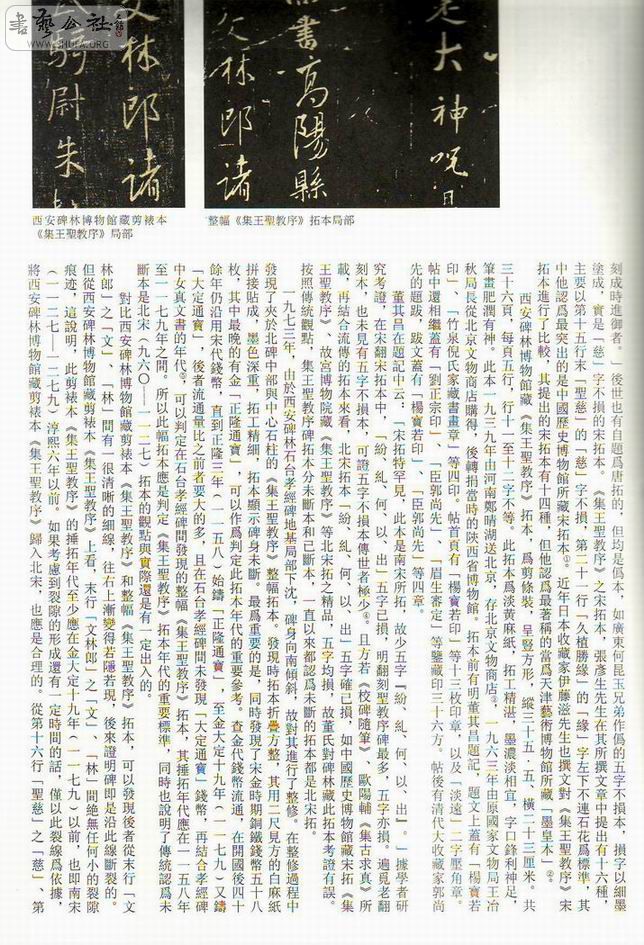 書藝公社
WWW.SHUFA.ORG
老大神呪日
品書高陽縣
文林郎諸
文林郎諸
騎尉朱
整幅《集王聖教序》拓本局部
西安碑林博物館藏剪裱本
《集王聖教序》局部
刻成時進御者。」後世也有自題爲唐拓的，但均是僞本，如廣東何昆玉兄弟作僞的五字不損本，損字以細墨
塗成，實是「慈」字不損的宋拓本。《集王聖教序》之宋拓本，張彥生先生在其所撰文章中提出有十六種，
主要以第十五行末「聖慈」的「慈」字不損，第二十一行「久植勝緣」的「緣」字左下不連石花爲標準，其
中他認爲最突出的是中國歷史博物館所藏宋拓本①。近年日本收藏家伊藤滋先生也撰文對《集王聖教序》宋
拓本進行了比較，其提出的宋拓本有十四種，但他認爲最著稱的當爲天津藝術博物館所藏「墨皇本」②。
西安碑林博物館藏《集王聖教序》拓本，爲剪條裝，呈竪方形，縱三十五．五，橫二十三厘米。共
三十六頁，每頁五行，行十一至十二字不等。此拓本爲淡黃麻紙，拓工精湛，墨濃淡相宜，字口鋒利神足，
筆畫肥潤有神。此本一九三九年由河南鄭晴湖送北京，存北京文物商店③，一九六三年由原國家文物局王冶
秋局長從北京文物商店購得，後轉捐當時的陝西省博物館。拓本前有明董其昌題記，題文上蓋有「楊寶若
印」、「竹泉倪氏家藏書畫章」等四印。帖首頁有「楊寶若印」等十三枚印章，以及「淡遠」二字壓角章。
帖中還相繼蓋有「劉正宗印」、「臣郭尚先」、「眉生審定」等鑒藏印三十六方。帖後有清代大收藏家郭尚
先的題跋，跋文蓋有「楊寶若印」、「臣郭尚先」等四章。
董其昌在題記中云：「宋拓特罕見，此本是南宋所拓，故少五字『紛、糺、何、以、出』。」據學者研
究考證，在宋翻宋拓本中，「紛、糺、何、以、出」五字已損，明翻刻聖教序碑最多，五字亦損。遍覓老翻
刻本，也未見有五字不損本，可證五字不損本傳世者極少④。且方若《校碑隨筆》、歐陽輔《集古求真》所
載，再結合流傳的拓本來看，北宋拓本「紛、糺、何、以、出」五字確已損，如中國歷史博物館藏宋拓《集
王聖教序》、故宮博物院藏《集王聖教序》等北宋拓之精品，五字均損，故董氏對碑林藏此拓本考證有誤。
按照傳統觀點，集王聖教序碑拓本分未斷本和已斷本，一直以來都認爲未斷的拓本都是北宋拓。
一九七三年，由於西安碑林石台孝經碑地基局部下沈，碑身向南傾斜，故對其進行了整修。在整修過程中
發現了夾於北碑中部與中心石柱的《集王聖教序》整幅拓本。發現時拓本折疊方整，其用二尺見方的白麻紙
拼接貼成，墨色深重，拓工精細，拓本顯示碑身未斷。最爲重要的是，同時發現了宋金時期銅鐵錢幣五十八
枚，其中最晚的有金「正隆通寶」，可以作爲判定此拓本年代的重要參考。查金代錢幣流通，在開國後四十
餘年仍沿用宋代錢幣，直到正隆三年（一一五八）始鑄「正隆通寶」，至金大定十九年（一一七九）又鑄
「大定通寶」，後者流通量比之前者要大的多，且在石台孝經碑間未發現「大定通寶」錢幣，再結合孝經碑
中女真文書的年代⑤，可以判定在石台孝經碑間發現的整幅《集王聖教序》拓本，其捶拓年代應在一一五八年
至一一七九年之間。所以此幅拓本應是判定《集王聖教序》拓本年代的重要標準，同時也說明了傳統認爲未
斷本是北宋（九六〇——一一二七）拓本的觀點與實際還是有一定出入的。
對比西安碑林博物館藏剪裱本《集王聖教序》和整幅《集王聖教序》拓本，可以發現後者從末行「文
林郎」之「文」、「林」間有一很清晰的細線，往右上漸變得若隱若現，後來證明碑即是沿此線斷裂的。
但從西安碑林博物館藏剪裱本《集王聖教序》上看，末行「文林郎」之「文」、「林」間絶無任何小的裂隙
痕迹，這說明，此剪裱本《集王聖教序》的捶拓年代至少應在金大定十九年（一一七九）以前，也即南宋
（一一二七—一二七九）淳熙六年以前。如果考慮到裂隙的形成還有一定時間的話，僅以此裂線爲依據，
將西安碑林博物館藏剪裱本《集王聖教序》歸入北宋，也應是合理的。從第十六行「聖慈」之「慈」、第